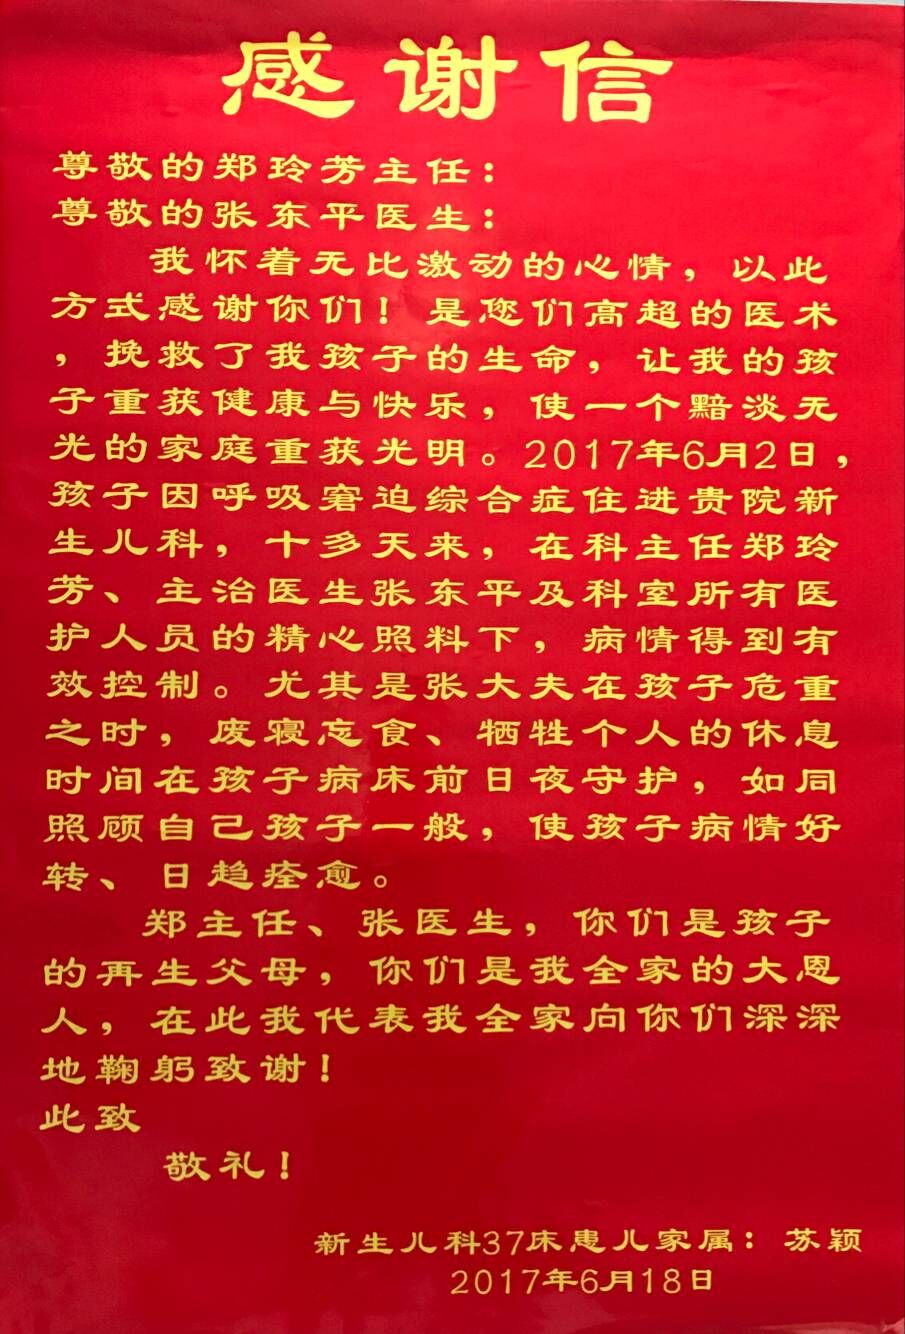 感谢信
尊敬的郑玲芳主任：
尊敬的张东平医生：
我怀着无比激动的心情，以此
方式感谢你们！是您们高超的医术
，挽救了我孩子的生命，让我的孩
子重获健康与快乐，使一个黯淡无
光的家庭重获光明。2017年6月2日，
孩子因呼吸窘迫综合症住进贵院新
生儿科，十多天来，在科主任郑玲
芳、主治医生张东平及科室所有医
护人员的精心照料下，病情得到有
效控制。尤其是张大夫在孩子危重
之时，废寝忘食、牺牲个人的休息
时间在孩子病床前日夜守护，如同
照顾自己孩子一般，使孩子病情好
转、日趋痊愈。
郑主任、张医生，你们是孩子
的再生父母，你们是我全家的大恩
人，在此我代表我全家向你们深深
地鞠躬致谢！
此致
敬礼！
新生儿科37床患儿家属：苏颖
2017年6月18日